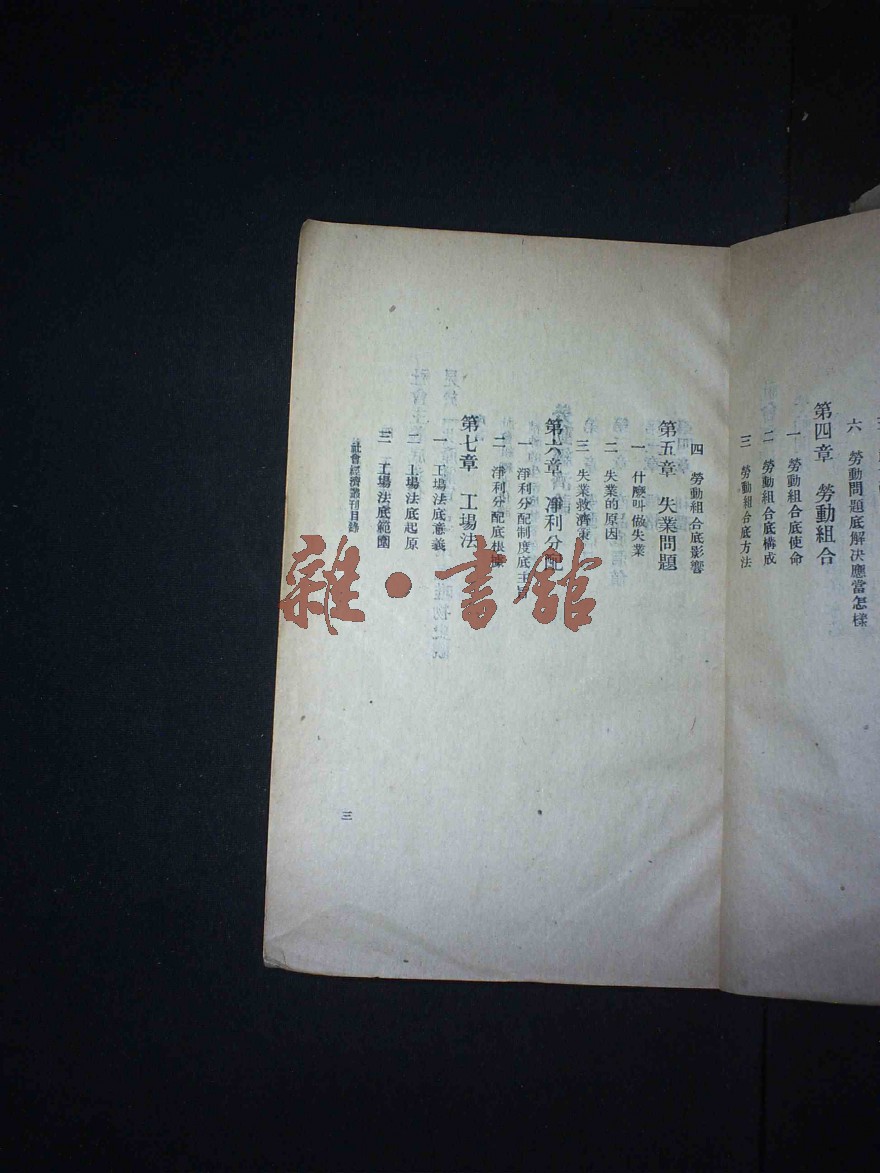 六 勞動問題底解決應當怎樣
第四章 勞動組合
一 勞動組合底使命
二 勞動組合底構成
三 勞動組合底方法
四 勞動組合底影響
第五章 失業問題
一 什麼叫做失業
二 失業的原因
三 失業救濟策
第六章 淨利分配
一 淨利分配制度底主旨
二 淨利分配底根據
第七章 工場法
一 工場法底意義
二 工場法底起原
三 工場法底範圍
社會經濟叢刊目錄
三
雜·書館